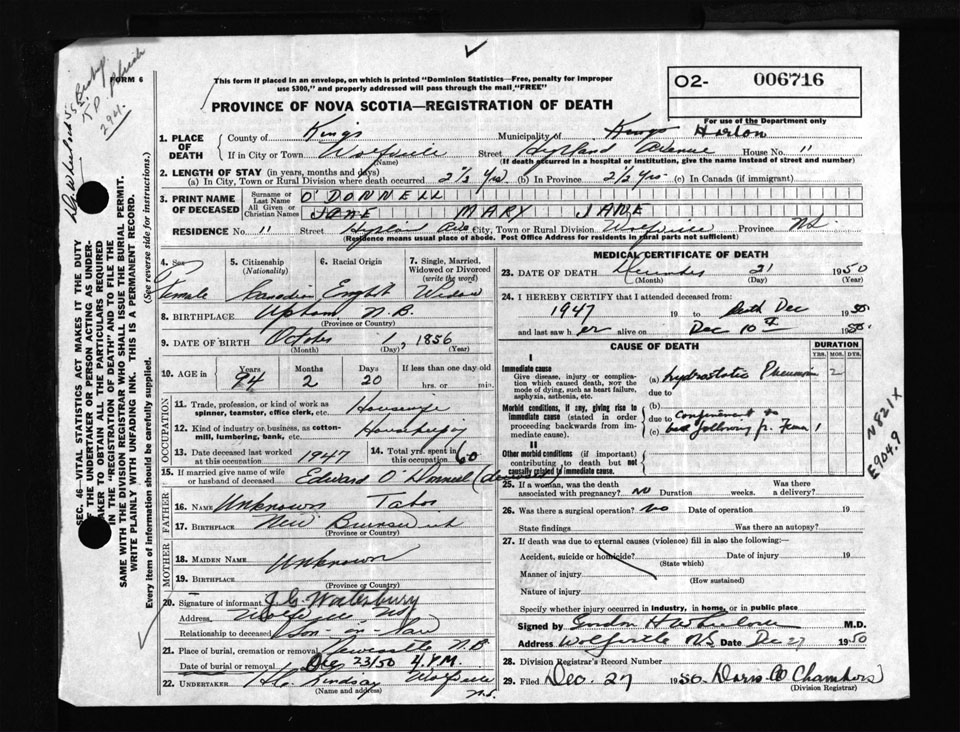 FORM 6
This form if placed in an envelope, on which is printed "Dominion Statistics—Free, penalty for improper
use $300," and properly addressed will pass through the mail "FREE"
PROVINCE OF NOVA SCOTIA—REGISTRATION OF DEATH
O2- 006716
For use of the Department only
294.
SEC. 46—VITAL STATISTICS ACT MAKES IT THE DUTY
OF THE UNDERTAKER OR PERSON ACTING AS UNDER-
TAKER TO OBTAIN ALL THE PARTICULARS REQUIRED
IN THE "REGISTRATION OF DEATH" AND TO FILE THE
SAME WITH THE DIVISION REGISTRAR WHO SHALL ISSUE THE BURIAL PERMIT.
WRITE PLAINLY WITH UNFADING INK. THIS IS A PERMANENT RECORD.
Every item of information should be carefully supplied. (See reverse side for instructions.)
1. PLACE OF DEATH County of Kings Municipality of Kings Horton
If in City or Town Wolfville Street Highland Avenue House No. 11
(Name) (If death occurred in a hospital or institution, give the name instead of street and number)
2. LENGTH OF STAY (in years, months and days)
(a) In City, Town or Rural Division where death occurred 2½ yrs. (b) In Province 2½ yrs (c) In Canada (if immigrant)
3. PRINT NAME OF DECEASED Surname or Last Name O'DONNELL
All Given or Christian Names JANE MARY JANE
RESIDENCE No. 11 Street City, Town or Rural Division Wolfville Province NS
(Residence means usual place of abode. Post Office Address for residents in rural parts not sufficient)
4. Sex Female
5. Citizenship (Nationality) Canadian
6. Racial Origin English
7. Single, Married, Widowed or Divorced (write the word) Widow
8. BIRTHPLACE Upham N.B.
(Province or Country)
9. DATE OF BIRTH October 1, 1856
(Month) (Day) (Year)
10. AGE in Years 94 Months 2 Days 20 If less than one day old hrs. or min.
OCCUPATION
11. Trade, profession, or kind of work as spinner, teamster, office clerk, etc. Housewife
12. Kind of industry or business, as cotton-mill, lumbering, bank, etc. Housekeeping
13. Date deceased last worked at this occupation 1947 14. Total yrs. spent in this occupation 60
15. If married give name of wife or husband of deceased Edward O'Donnell
FATHER
16. NAME Unknown Tabor
17. BIRTHPLACE New Brunswick
(Province or Country)
MOTHER
18. MAIDEN NAME Unknown
19. BIRTHPLACE
(Province or Country)
20. Signature of informant J.G. Waterbury
Address Wolfville NS
Relationship to deceased son-in-law
21. Place of burial, cremation or removal Newcastle N.B
Date of burial or removal Dec 23/50 4 P.M.
22. UNDERTAKER Lindsay Wolfville N.S.
(Name and address)
MEDICAL CERTIFICATE OF DEATH
23. DATE OF DEATH December 21 1950
(Month) (Day) (Year)
24. I HEREBY CERTIFY that I attended deceased from:
1947 19 to death Dec 1950.
and last saw her alive on Dec 10th 1950.
CAUSE OF DEATH
DURATION
YRS. MOS. DYS.
I
Immediate cause
Give disease, injury or complication which caused death, NOT the mode of dying, such as heart failure, asphyxia, asthenia, etc.
(a) hydrostatic Pneumonia 2
due to
Morbid conditions, if any, giving rise to immediate cause (stated in order proceeding backwards from immediate cause).
(b)
due to confinement to
(c) bed following fr. Femur 1
II
Other morbid conditions (if important) contributing to death but not causally related to immediate cause.
N821X
E904.9
25. If a woman, was the death associated with pregnancy? No Duration weeks. Was there a delivery?
26. Was there a surgical operation? No Date of operation 19
State findings Was there an autopsy?
27. If death was due to external causes (violence) fill in also the following:
Accident, suicide or homicide? Date of injury 19
(State which)
Manner of injury
(How sustained)
Nature of injury
Specify whether injury occurred in industry, in home, or in public place
Signed by Gordon H Wheelock M.D.
Address Wolfville N.S Date Dec 27 1950
28. Division Registrar's Record Number
29. Filed Dec. 27 1950. Doris Chambers
(Division Registrar)